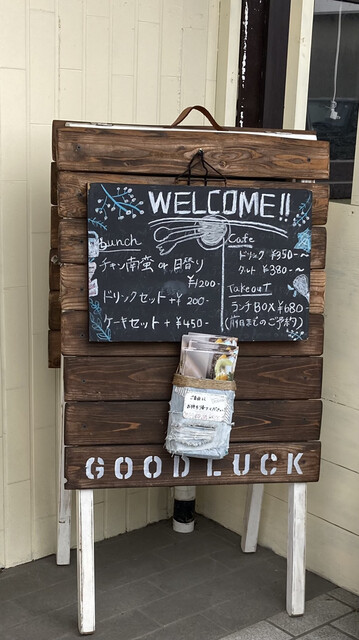 WELCOME!!
Lunch
チキン南蛮 or 日替り
¥1200-
ドリンクセット +¥200-
ケーキセット +¥450-
Cafe
ドリンク ¥350-~
タルト ¥380-~
TakeouT
ランチBOX ¥680
(前日までのご予約)
ご自由に
お持ち帰りください
GOOD LUCK